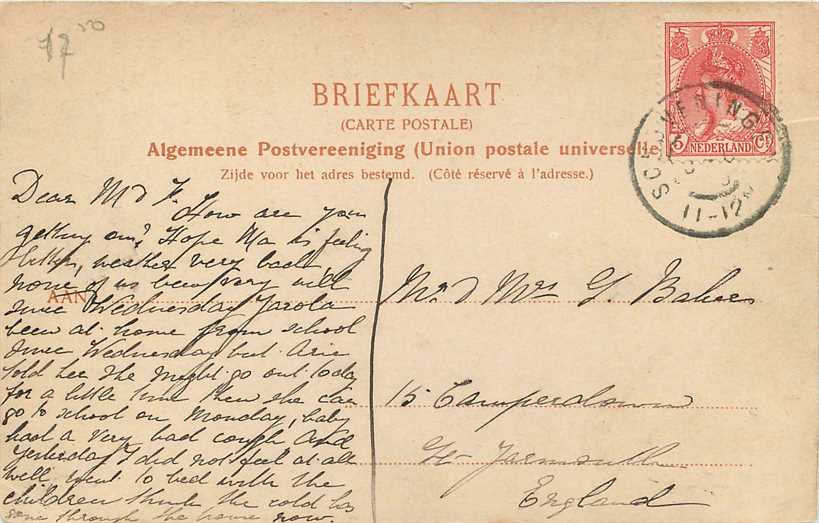 1720
BRIEFKAART
(CARTE POSTALE)
Algemeene Postvereeniging (Union postale universelle
Zijde voor het adres bestemd. (Côté réservé à l'adresse.)
NEDERLAND
SCHEVENINGEN
11-12
Dear M & F. How are you
getting on? Hope Ma is feeling
better, weather very bad
none of us been very well
since Wednesday
been at home from school
since Wednesday but
told her she might go out today
for a little time then she can
go to school on Monday, baby
had a very bad cough and
yesterday I did not feel at all
well, went to bed with the
children think the cold has
gone through the house now.
AAN
Mr & Mrs G. Baker
15 Camperdown
Gt Yarmouth
England